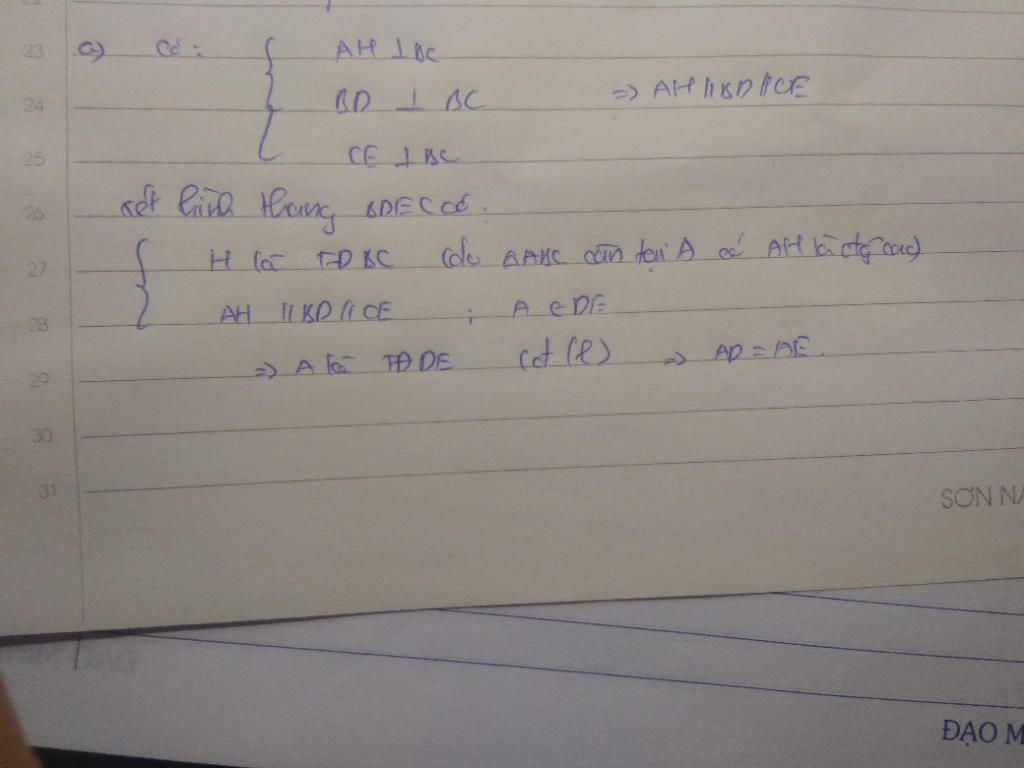 22
23 a) Có: { AH ⊥ BC
24 BD ⊥ BC => AH // BD // CE
25 CE ⊥ BC
26 xét hình thang BDEC có:
27 { H là TĐ BC (do ΔABC cân tại A có AH là đg cao)
28 AH // BD // CE ; A ∈ DE
29 => A là TĐ DE (đ/l) => AD = AE.
30
31
SƠN NA
ĐẠO M